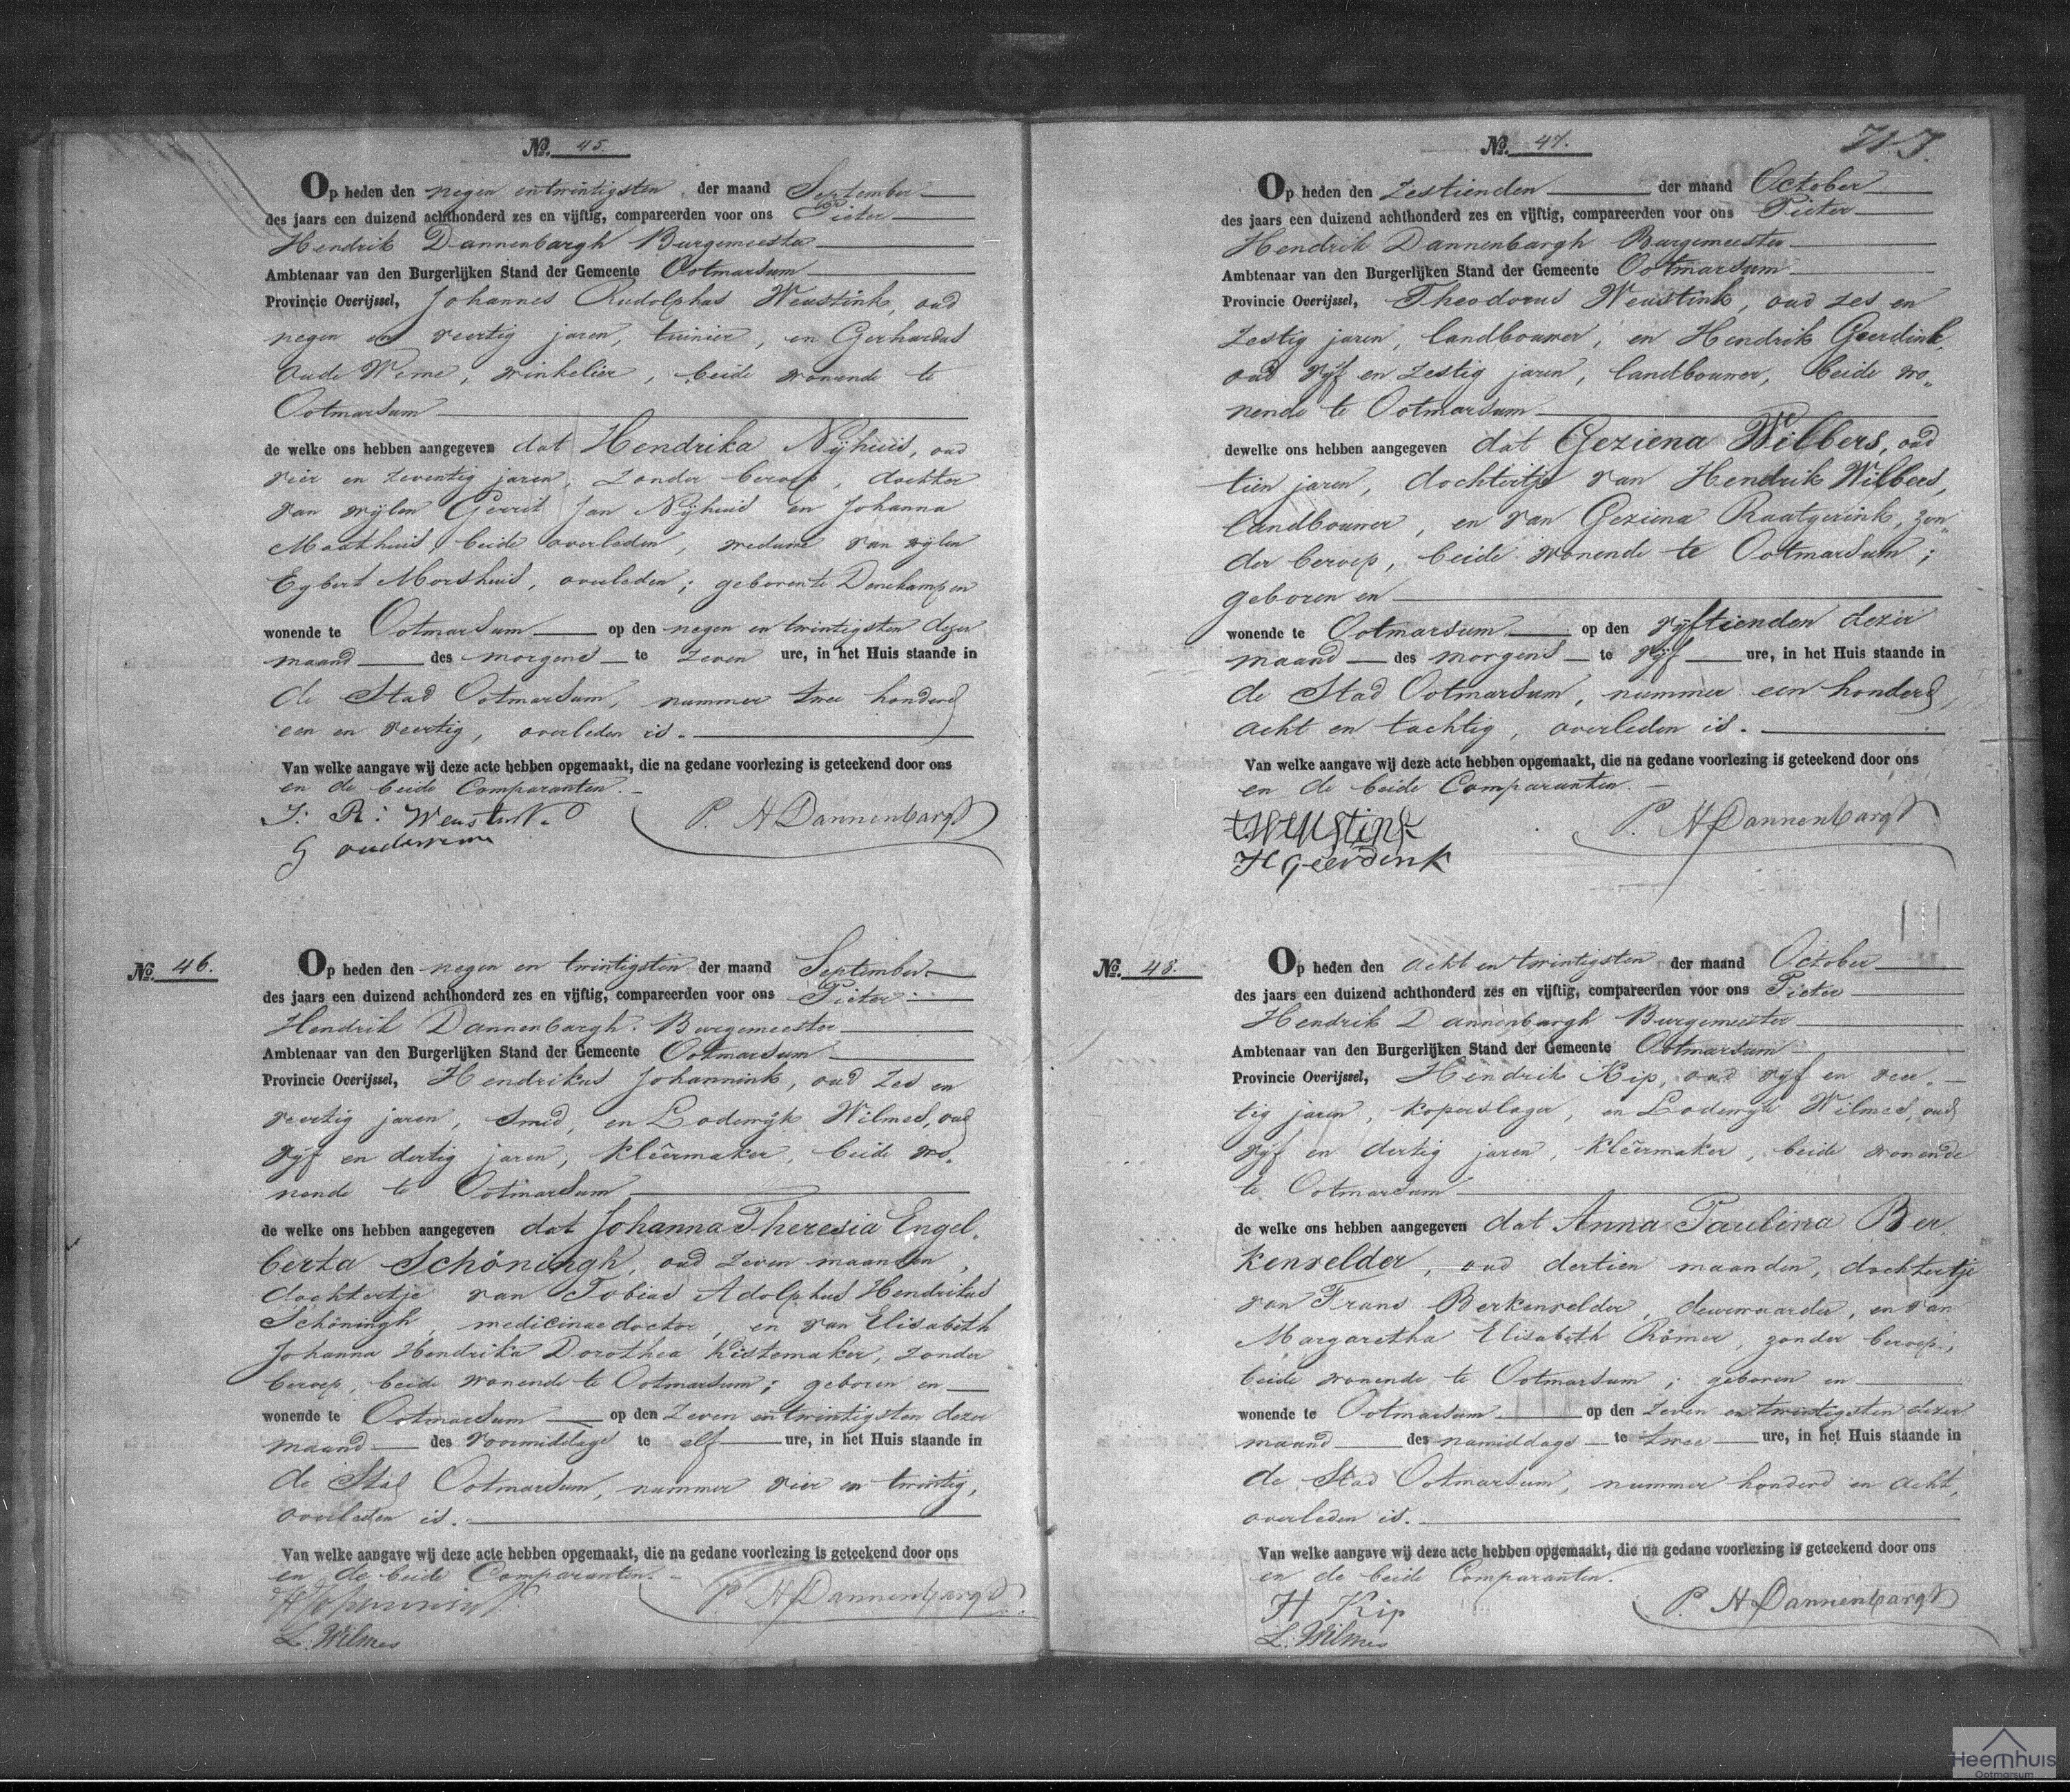 No. 45.
Op heden den negen en twintigsten der maand September
des jaars een duizend achthonderd zes en vijftig, compareerden voor ons Pieter
Hendrik Dannenbargh Burgemeester
Ambtenaar van den Burgerlijken Stand der Gemeente Ootmarsum
Provincie Overijssel, Johannes Rudolphus Weustink, oud
negen en veertig jaren, tuinier, en Gerhardus
Oude Weme, winkelier, beide wonende te
Ootmarsum
de welke ons hebben aangegeven dat Hendrika Nijhuis, oud
vier en zeventig jaren, zonder beroep, dochter
van wijlen Gerrit Jan Nijhuis en Johanna
Maathuis, beide overleden, weduwe van wijlen
Egbert Morshuis, overleden; geboren te Denekamp en
wonende te Ootmarsum op den negen en twintigsten dezer
maand des morgens te zeven ure, in het Huis staande in
de Stad Ootmarsum, nummer twee honderd
een en veertig, overleden is.
Van welke aangave wij deze acte hebben opgemaakt, die na gedane voorlezing is geteekend door ons
en de beide Comparanten.
J: R: Weustink P. H Dannenbargh
G oudeweme
No. 46.
Op heden den negen en twintigsten der maand September
des jaars een duizend achthonderd zes en vijftig, compareerden voor ons Pieter
Hendrik Dannenbargh. Burgemeester
Ambtenaar van den Burgerlijken Stand der Gemeente Ootmarsum
Provincie Overijssel, Hendrikus Johannink, oud zes en
veertig jaren, smid, en Lodewijk Wilmes, oud
vijf en dertig jaren, kleêrmaker, beide wo„
nende te Ootmarsum
de welke ons hebben aangegeven dat Johanna Theresia Engel„
berta Schöningh, oud zeven maanden,
dochtertje van Tobias Adolphus Hendrikus
Schöningh, medicinae doctor, en van Elisabeth
Johanna Hendrika Dorothea Kistemaker, zonder
beroep, beide wonende te Ootmarsum; geboren en
wonende te Ootmarsum op den zeven en twintigsten dezer
maand des voormiddags te elf ure, in het Huis staande in
de Stad Ootmarsum, nummer vier en twintig,
overleden is.
Van welke aangave wij deze acte hebben opgemaakt, die na gedane voorlezing is geteekend door ons
en de beide Comparanten.
P. H Dannenbargh
L. Wilmes
No. 47.
Op heden den zestienden der maand October
des jaars een duizend achthonderd zes en vijftig, compareerden voor ons Pieter
Hendrik Dannenbargh Burgemeester
Ambtenaar van den Burgerlijken Stand der Gemeente Ootmarsum
Provincie Overijssel, Theodorus Weustink, oud zes en
zestig jaren, landbouwer, en Hendrik Geerdink,
oud vijf en zestig jaren, landbouwer, beide wo„
nende te Ootmarsum
dewelke ons hebben aangegeven dat Geziena Wilbers, oud
tien jaren, dochtertje van Hendrik Wilbers,
landbouwer, en van Geziena Raatgerink, zon„
der beroep, beide wonende te Ootmarsum;
geboren en
wonende te Ootmarsum op den vijftienden dezer
maand des morgens te vijf ure, in het Huis staande in
de Stad Ootmarsum, nummer een honderd
acht en tachtig, overleden is.
Van welke aangave wij deze acte hebben opgemaakt, die na gedane voorlezing is geteekend door ons
en de beide Comparanten.
t weustink P. H Dannenbargh
H Geerdink
No. 48.
Op heden den acht en twintigsten der maand October
des jaars een duizend achthonderd zes en vijftig, compareerden voor ons Pieter
Hendrik Dannenbargh Burgemeester
Ambtenaar van den Burgerlijken Stand der Gemeente Ootmarsum
Provincie Overijssel, Hendrik Kip, oud vijf en veer„
tig jaren, koperslager, en Lodewijk Wilmes, oud
vijf en dertig jaren, kleêrmaker, beide wonende
te Ootmarsum
de welke ons hebben aangegeven dat Anna Paulina Ber„
kenvelder, oud dertien maanden, dochtertje
van Frans Berkenvelder, deurwaarder, en van
Margaretha Elisabeth Römer, zonder beroep,
beide wonende te Ootmarsum; geboren en
wonende te Ootmarsum op den zeven en twintigsten dezer
maand des namiddags te twee ure, in het Huis staande in
de Stad Ootmarsum, nummer honderd en acht,
overleden is.
Van welke aangave wij deze acte hebben opgemaakt, die na gedane voorlezing is geteekend door ons
en de beide Comparanten.
H Kip P. H Dannenbargh
L. Wilmes
Heemhuis
Ootmarsum